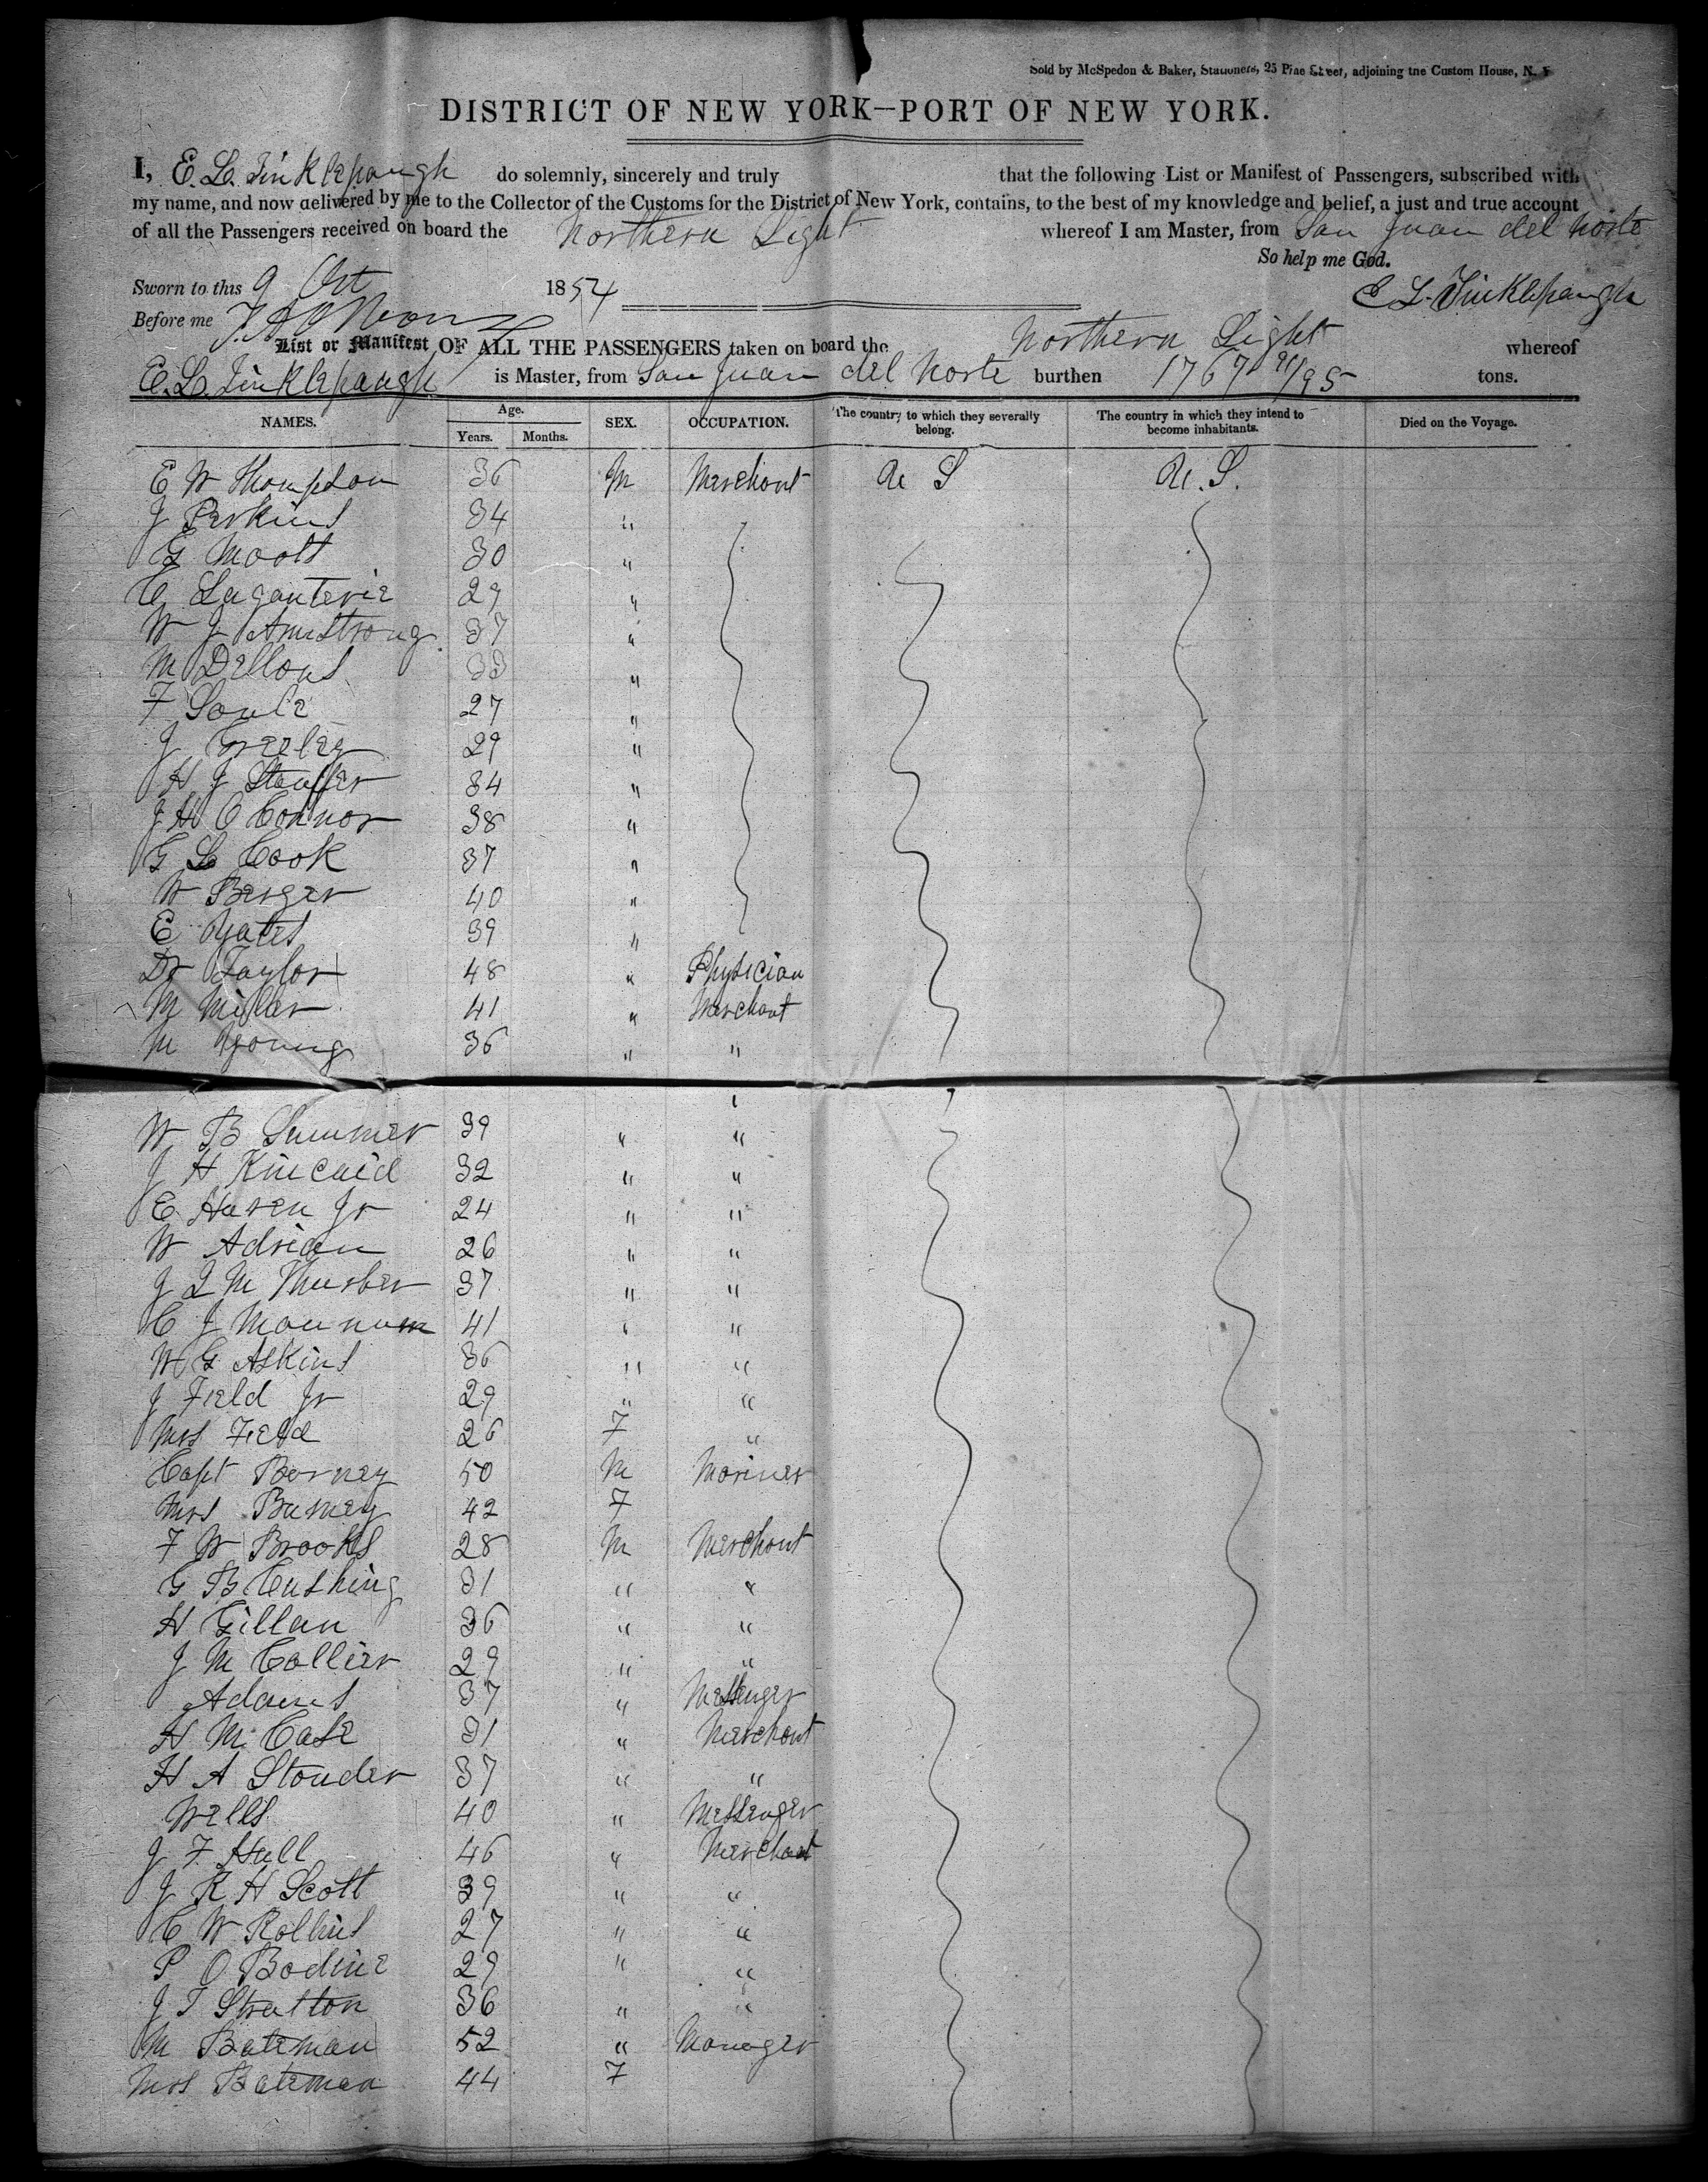 Sold by McSpedon & Baker, Stationers, 25 Pine Street, adjoining the Custom House, N. Y
DISTRICT OF NEW YORK—PORT OF NEW YORK.
I, E. L. Tinklepaugh do solemnly, sincerely and truly that the following List or Manifest of Passengers, subscribed with
my name, and now delivered by me to the Collector of the Customs for the District of New York, contains, to the best of my knowledge and belief, a just and true account
of all the Passengers received on board the Northern Light whereof I am Master, from San Juan del Norte
So help me God.
Sworn to this 9 Oct 1854 E L Tinklepaugh
Before me
List or Manifest OF ALL THE PASSENGERS taken on board the Northern Light whereof
E. L. Tinklepaugh is Master, from San Juan del Norte burthen 1767 91/95 tons.
NAMES. Age. Years. Months. SEX. OCCUPATION. The country to which they severally belong. The country in which they intend to become inhabitants. Died on the Voyage.
E W Thompson 36 M Merchant U S U. S.
J Perkins 34 "
G Moott 30 "
C Laganterie 29 "
W J Armstrong 37 "
M Dellons 33 "
F Soule 27 "
J Greeley 29 "
H J Stouffer 34 "
J H O Connor 38 "
G L Cook 37 "
W Berger 40 "
E Yates 39 "
Dr Taylor 48 " Physician
M Miller 41 " Merchant
M Young 36 " "
W B Summer 39 " "
J H Kincaid 32 " "
E Haven Jr 24 " "
W Adrian 26 " "
J Q M Thurber 37 " "
C J 41 " "
W G Askins 36 " "
J Field Jr 29 " "
Mrs Field 26 F "
Capt Barney 50 M Mariner
Mrs Barney 42 F
F W Brooks 28 M Merchant
G B Cushing 31 " "
H Gillan 36 " "
J M Collier 29 " "
Adams 37 " Messenger
H M Case 31 " Merchant
H A Stouder 37 " "
Wells 40 " Messenger
J F Hall 46 " Merchant
J R H Scott 39 " "
C W Rollins 27 " "
P O Bodine 29 " "
J T Stratton 36 " "
M Bateman 52 " Manager
Mrs Bateman 44 F